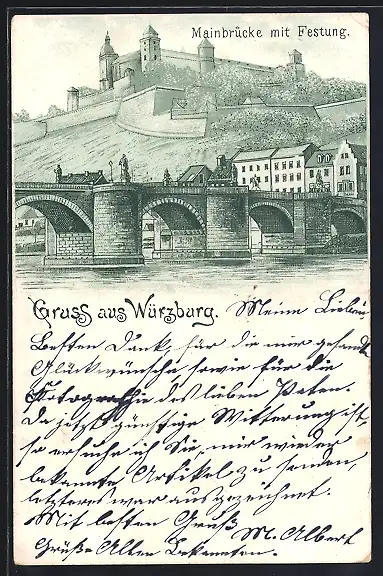 Mainbrücke mit Festung.
Gruss aus Würzburg. Meine Lieben
Besten Dank, für die mir gesandte
Glückwünsche sowie für die
Fotografie des lieben Paten.
Da jetzt günstige Witterung ist,
so ersuche ich Sie, mir wieder
bekannte Artikel zu senden,
letzteres war ausgezeichnet.
Mit besten Gruß M. Albert
Grüße Allen Bekannten.